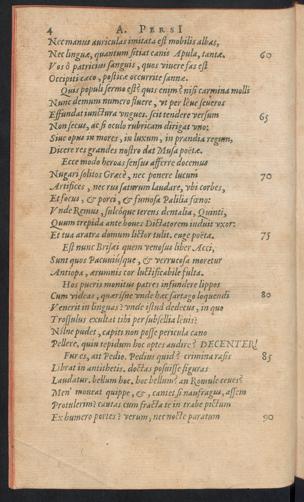 4 A. PERSI
Nec manus auriculas imitata est mobilis albas,
Nec linguæ, quantum sitiat canis Apula, tantæ.
60
Vos ô patricius sanguis, quos viuere fas est
Occipiti cæco, posticæ occurrite sannæ.
Quis populi sermo est? quis enim? nisi carmina molli
Nunc demum numero fluere, vt per leue seueros
Effundat iunctura vngues. scit tendere versum
65
Non secus, ac si oculo rubricam dirigat vno:
Siue opus in mores, in luxum, in prandia regum,
Dicere res grandes nostro dat Musa poëtæ.
Ecce modo heroas sensus afferre docemus
Nugari solitos Græcè, nec ponere lucum
70
Artifices, nec rus saturum laudare, vbi corbes,
Et focus, & porci, & fumosa Palilia fœno:
Vnde Remus, sulcóque terens dentalia, Quinti,
Quum trepida ante boues Dictatorem induit vxor:
Et tua aratra domum lictor tulit. euge poëta,
75
Est nunc Brisæi quem venosus liber Accî,
Sunt quos Pacuuiúsque, & verrucosa moretur
Antiopa, ærumnis cor luctificabile fulta.
Hos pueris monitus patres infundere lippos
Cum videas, quærísne vnde hæc sartago loquendi
80
Venerit in linguas? vnde istud dedecus, in quo
Trossulus exultat tibi per subsellia leuis?
Nilne pudet, capiti non posse pericula cano
Pellere, quin tepidum hoc optes audire? DECENTER?
Fur es, ait Pedio. Pedius quid? crimina rasis
85
Librat in antithetis. doctas posuisse figuras
Laudatur. bellum hoc. hoc bellum? an Romule ceues?
Men' moueat quippe, &, cantet si naufragus, assem
Protulerim? cantas cum fracta te in trabe pictum
Ex humero portes? verum, nec nocte paratum
90